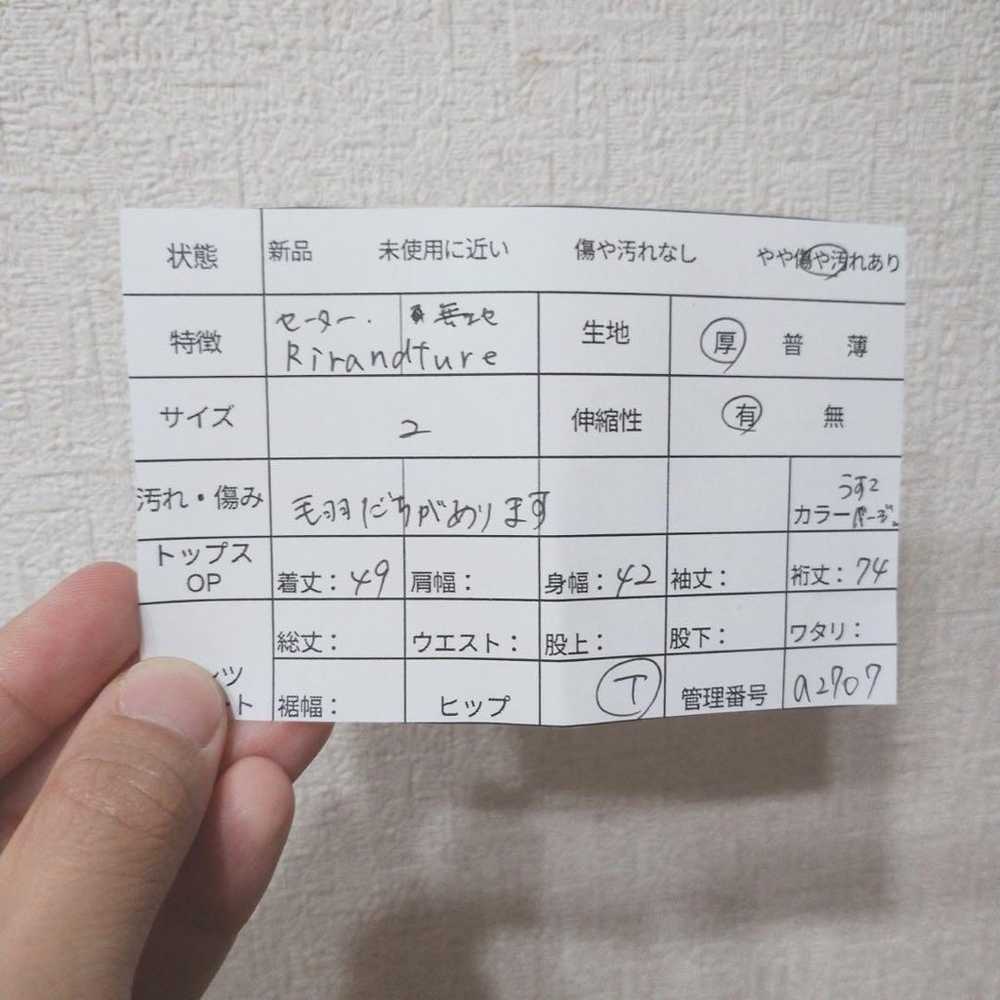 状態 新品 未使用に近い 傷や汚れなし やや傷や汚れあり
特徴 セーター. 無地 生地 厚 普 薄
Rirandture
サイズ 2 伸縮性 有 無
汚れ・傷み 毛羽だちがあります カラー ベージュ
トップス
OP 着丈:49 肩幅: 身幅:42 袖丈: 裄丈:74
総丈: ウエスト: 股上: 股下: ワタリ:
裾幅: ヒップ T 管理番号 a2707